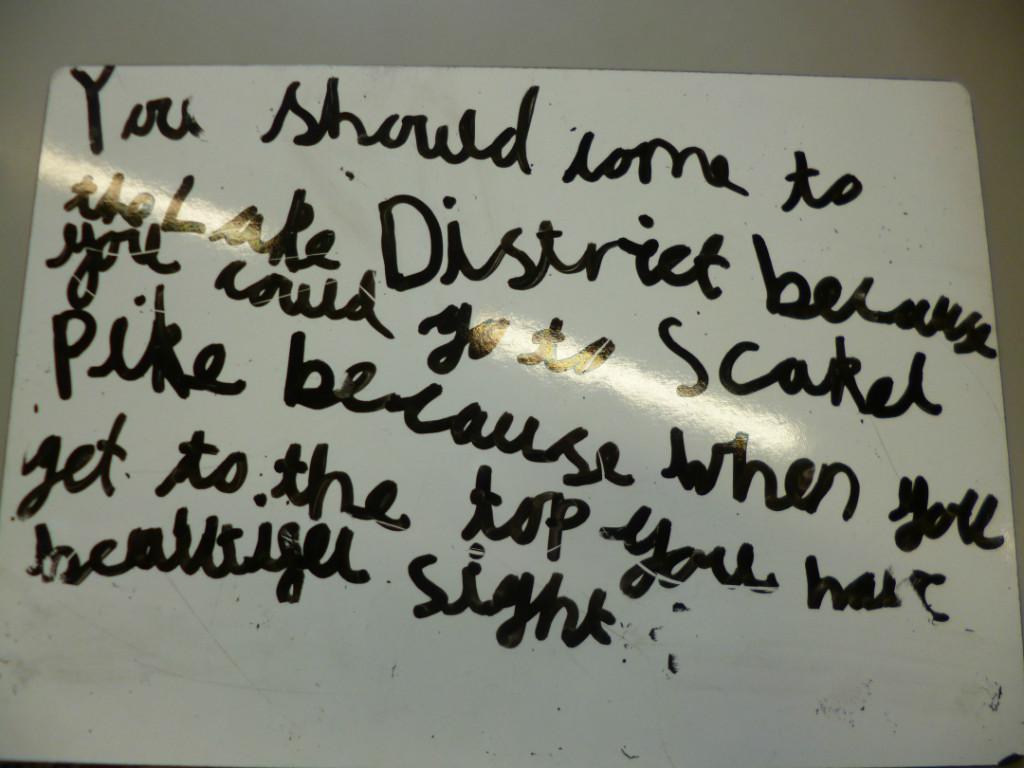 You should come to
the Lake District because
you could go to Scakel
Pike because when you
get to the top you have
beautiful sight